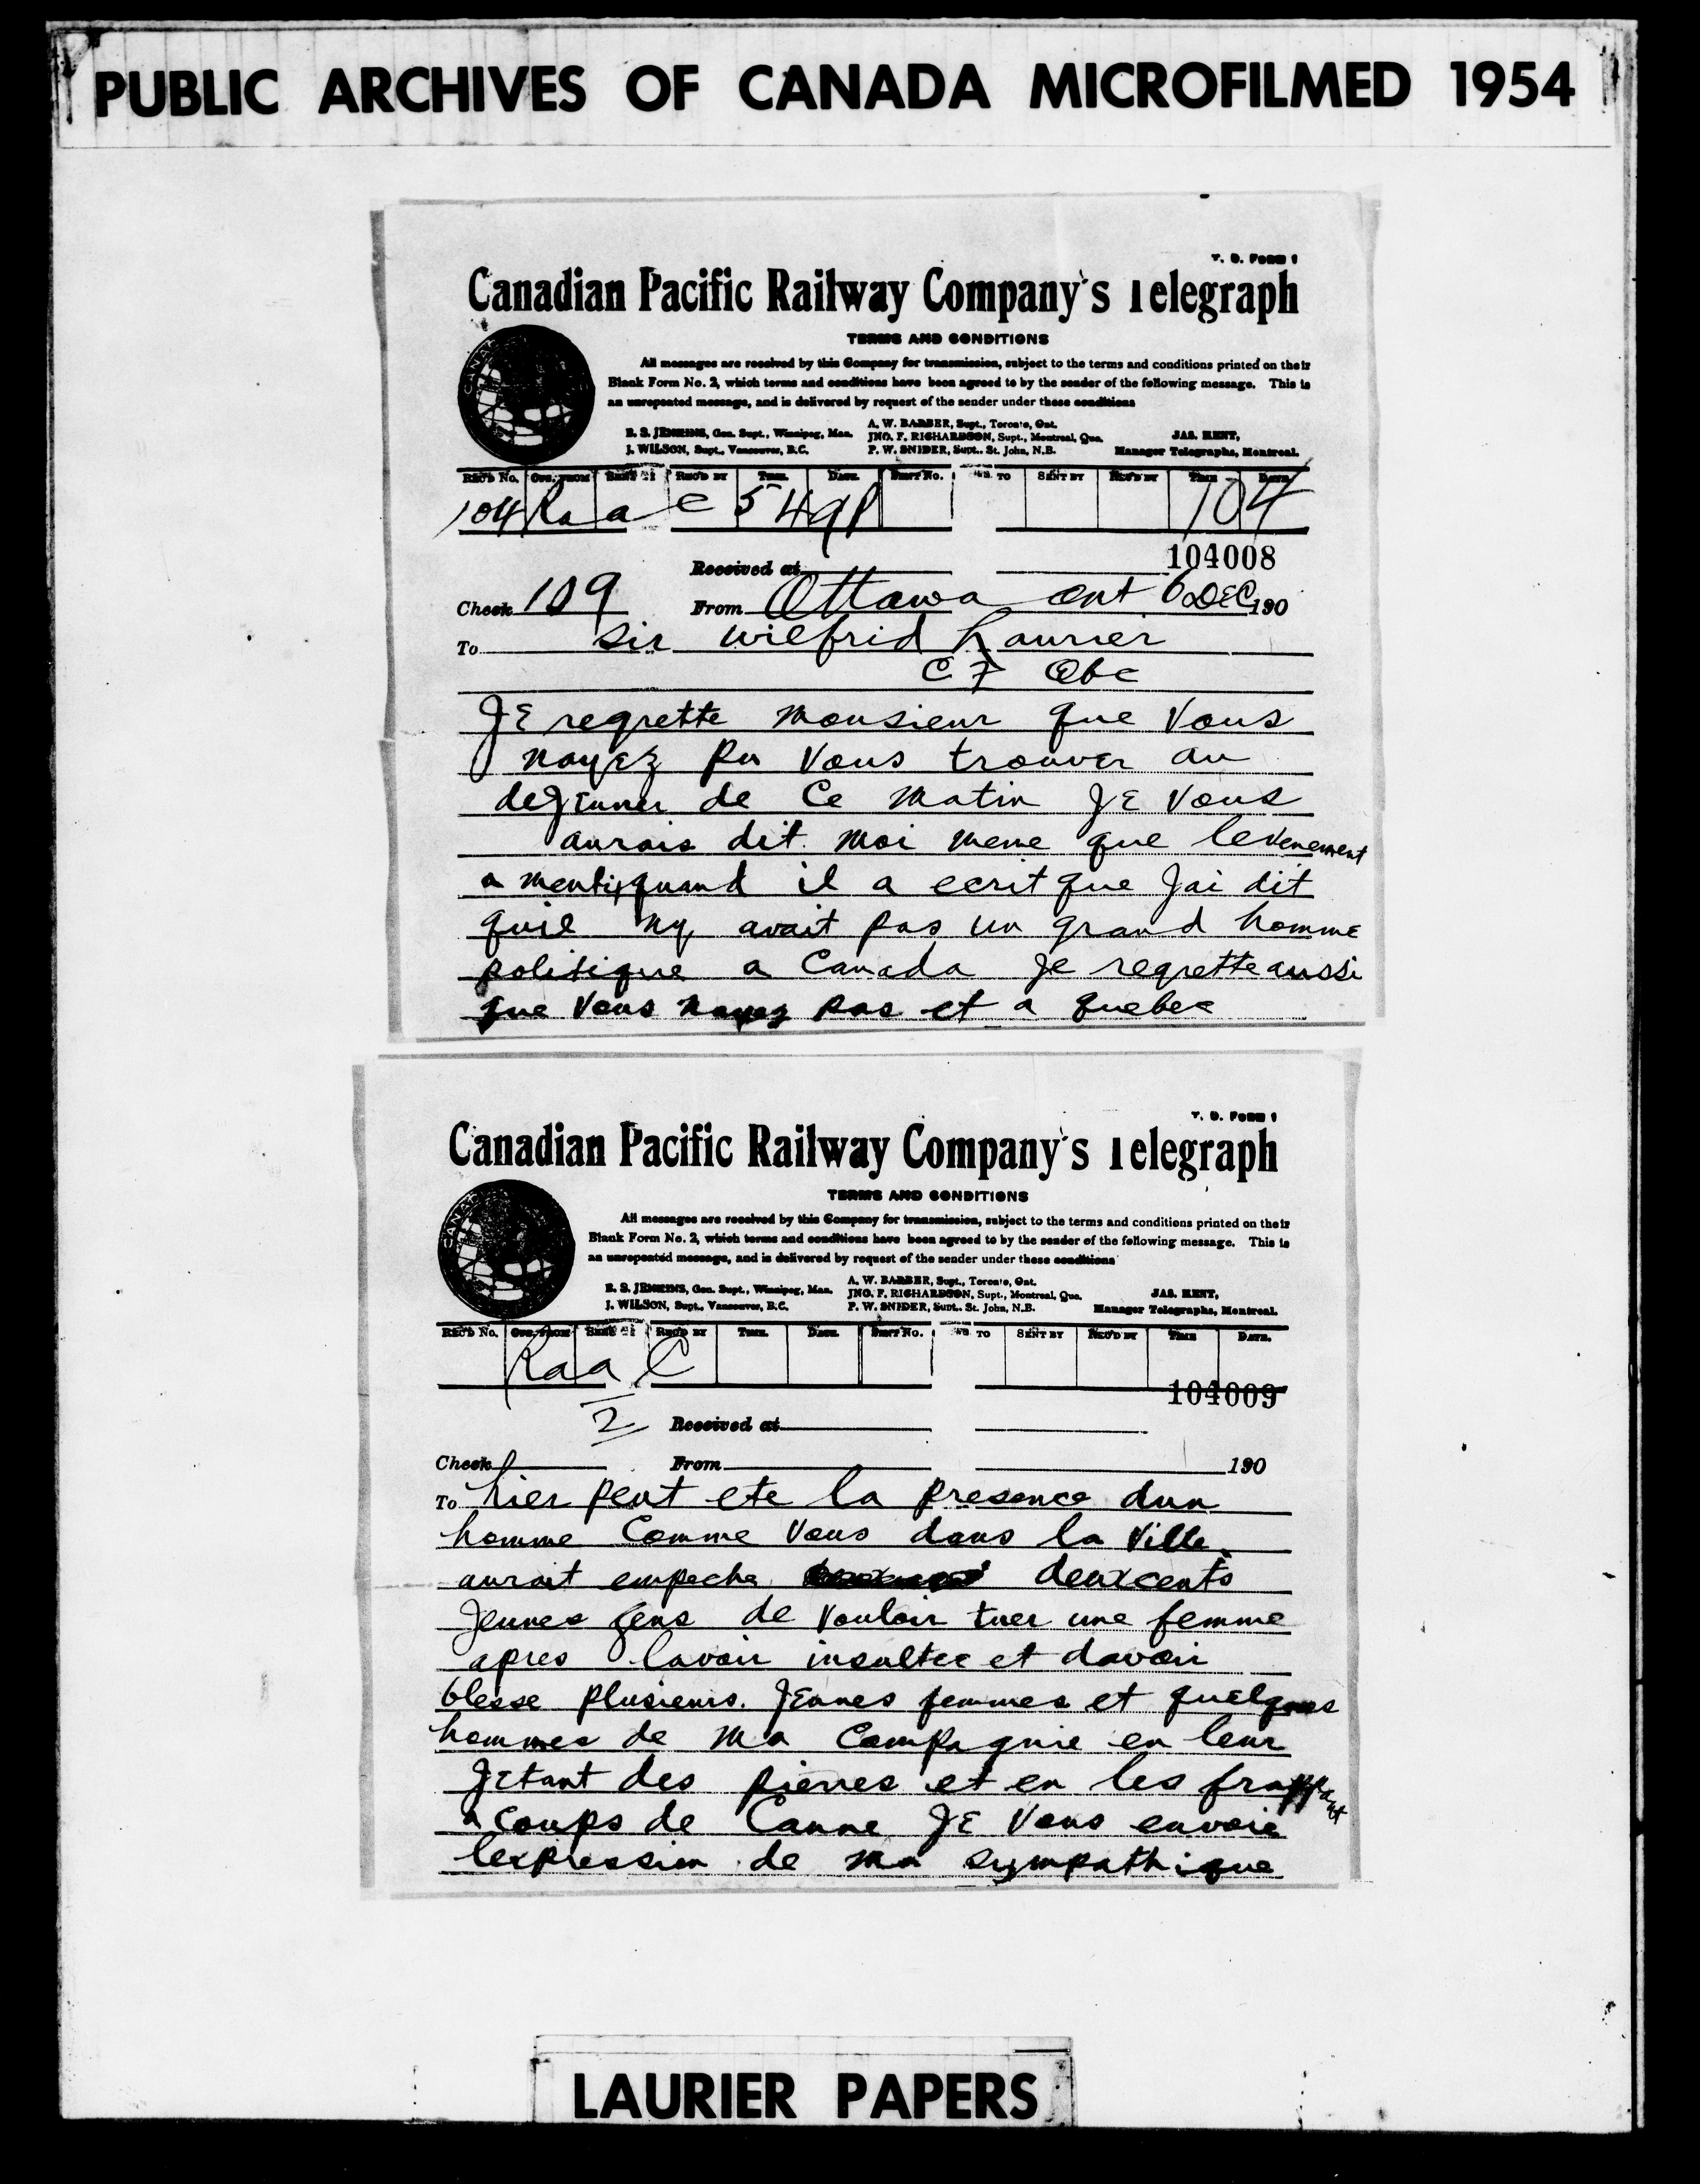 PUBLIC ARCHIVES OF CANADA MICROFILMED 1954
T. D. FORM 1
Canadian Pacific Railway Company's Telegraph
TERMS AND CONDITIONS
All messages are received by this Company for transmission, subject to the terms and conditions printed on their
Blank Form No. 2, which terms and conditions have been agreed to by the sender of the following message. This is
an unrepeated message, and is delivered by request of the sender under these conditions
B. S. JENKINS, Gen. Supt., Winnipeg, Man. A. W. BARBER, Supt., Toronto, Ont.
JNO. F. RICHARDSON, Supt., Montreal, Que. JAS. KENT,
J. WILSON, Supt., Vancouver, B.C. P. W. SNIDER, Supt. St. John, N.B. Manager Telegraphs, Montreal.
REC'D No. OFF. FROM SENT BY REC'D BY TIME. DATE. DIST No. TO SENT BY REC'D BY TIME DATE
104 Ra a C 5 49p 104
104008
Received at
Check 109 From Ottawa ont 6 DEC 190
To Sir Wilfrid Laurier
C F Qbc
JE regrette Monsieur que Vous
nayEz pu Vous trouver au
dejeuner de Ce Matin JE Vous
aurais dit moi meme que levenement
a menti quand il a ecrit que Jai dit
quil ny avait pas un grand homme
politique a Canada Je regrette aussi
que Vous nayez pas et a quebec
T. D. FORM 1
Canadian Pacific Railway Company's Telegraph
TERMS AND CONDITIONS
All messages are received by this Company for transmission, subject to the terms and conditions printed on their
Blank Form No. 2, which terms and conditions have been agreed to by the sender of the following message. This is
an unrepeated message, and is delivered by request of the sender under these conditions
B. S. JENKINS, Gen. Supt., Winnipeg, Man. A. W. BARBER, Supt., Toronto, Ont.
JNO. F. RICHARDSON, Supt., Montreal, Que. JAS. KENT,
J. WILSON, Supt., Vancouver, B.C. P. W. SNIDER, Supt. St. John, N.B. Manager Telegraphs, Montreal.
REC'D No. OFF. FROM SENT BY REC'D BY TIME. DATE. DIST No. TO SENT BY REC'D BY TIME DATE.
Raa C
104009
2 Received at
Check From 190
To hier peut ete la presence dun
homme Comme Vous dans la Ville
aurait empeche deuxcents
Jeunes gens de vouloir tuer une femme
apres lavoir insultee et davoir
blesse plusieurs JEunes femmes et quelques
hommes de Ma Compagnie en leur
JEtant des pierres et en les frappant
a coups de Canne JE Vous envoie
lexpression de ma sympathique
LAURIER PAPERS